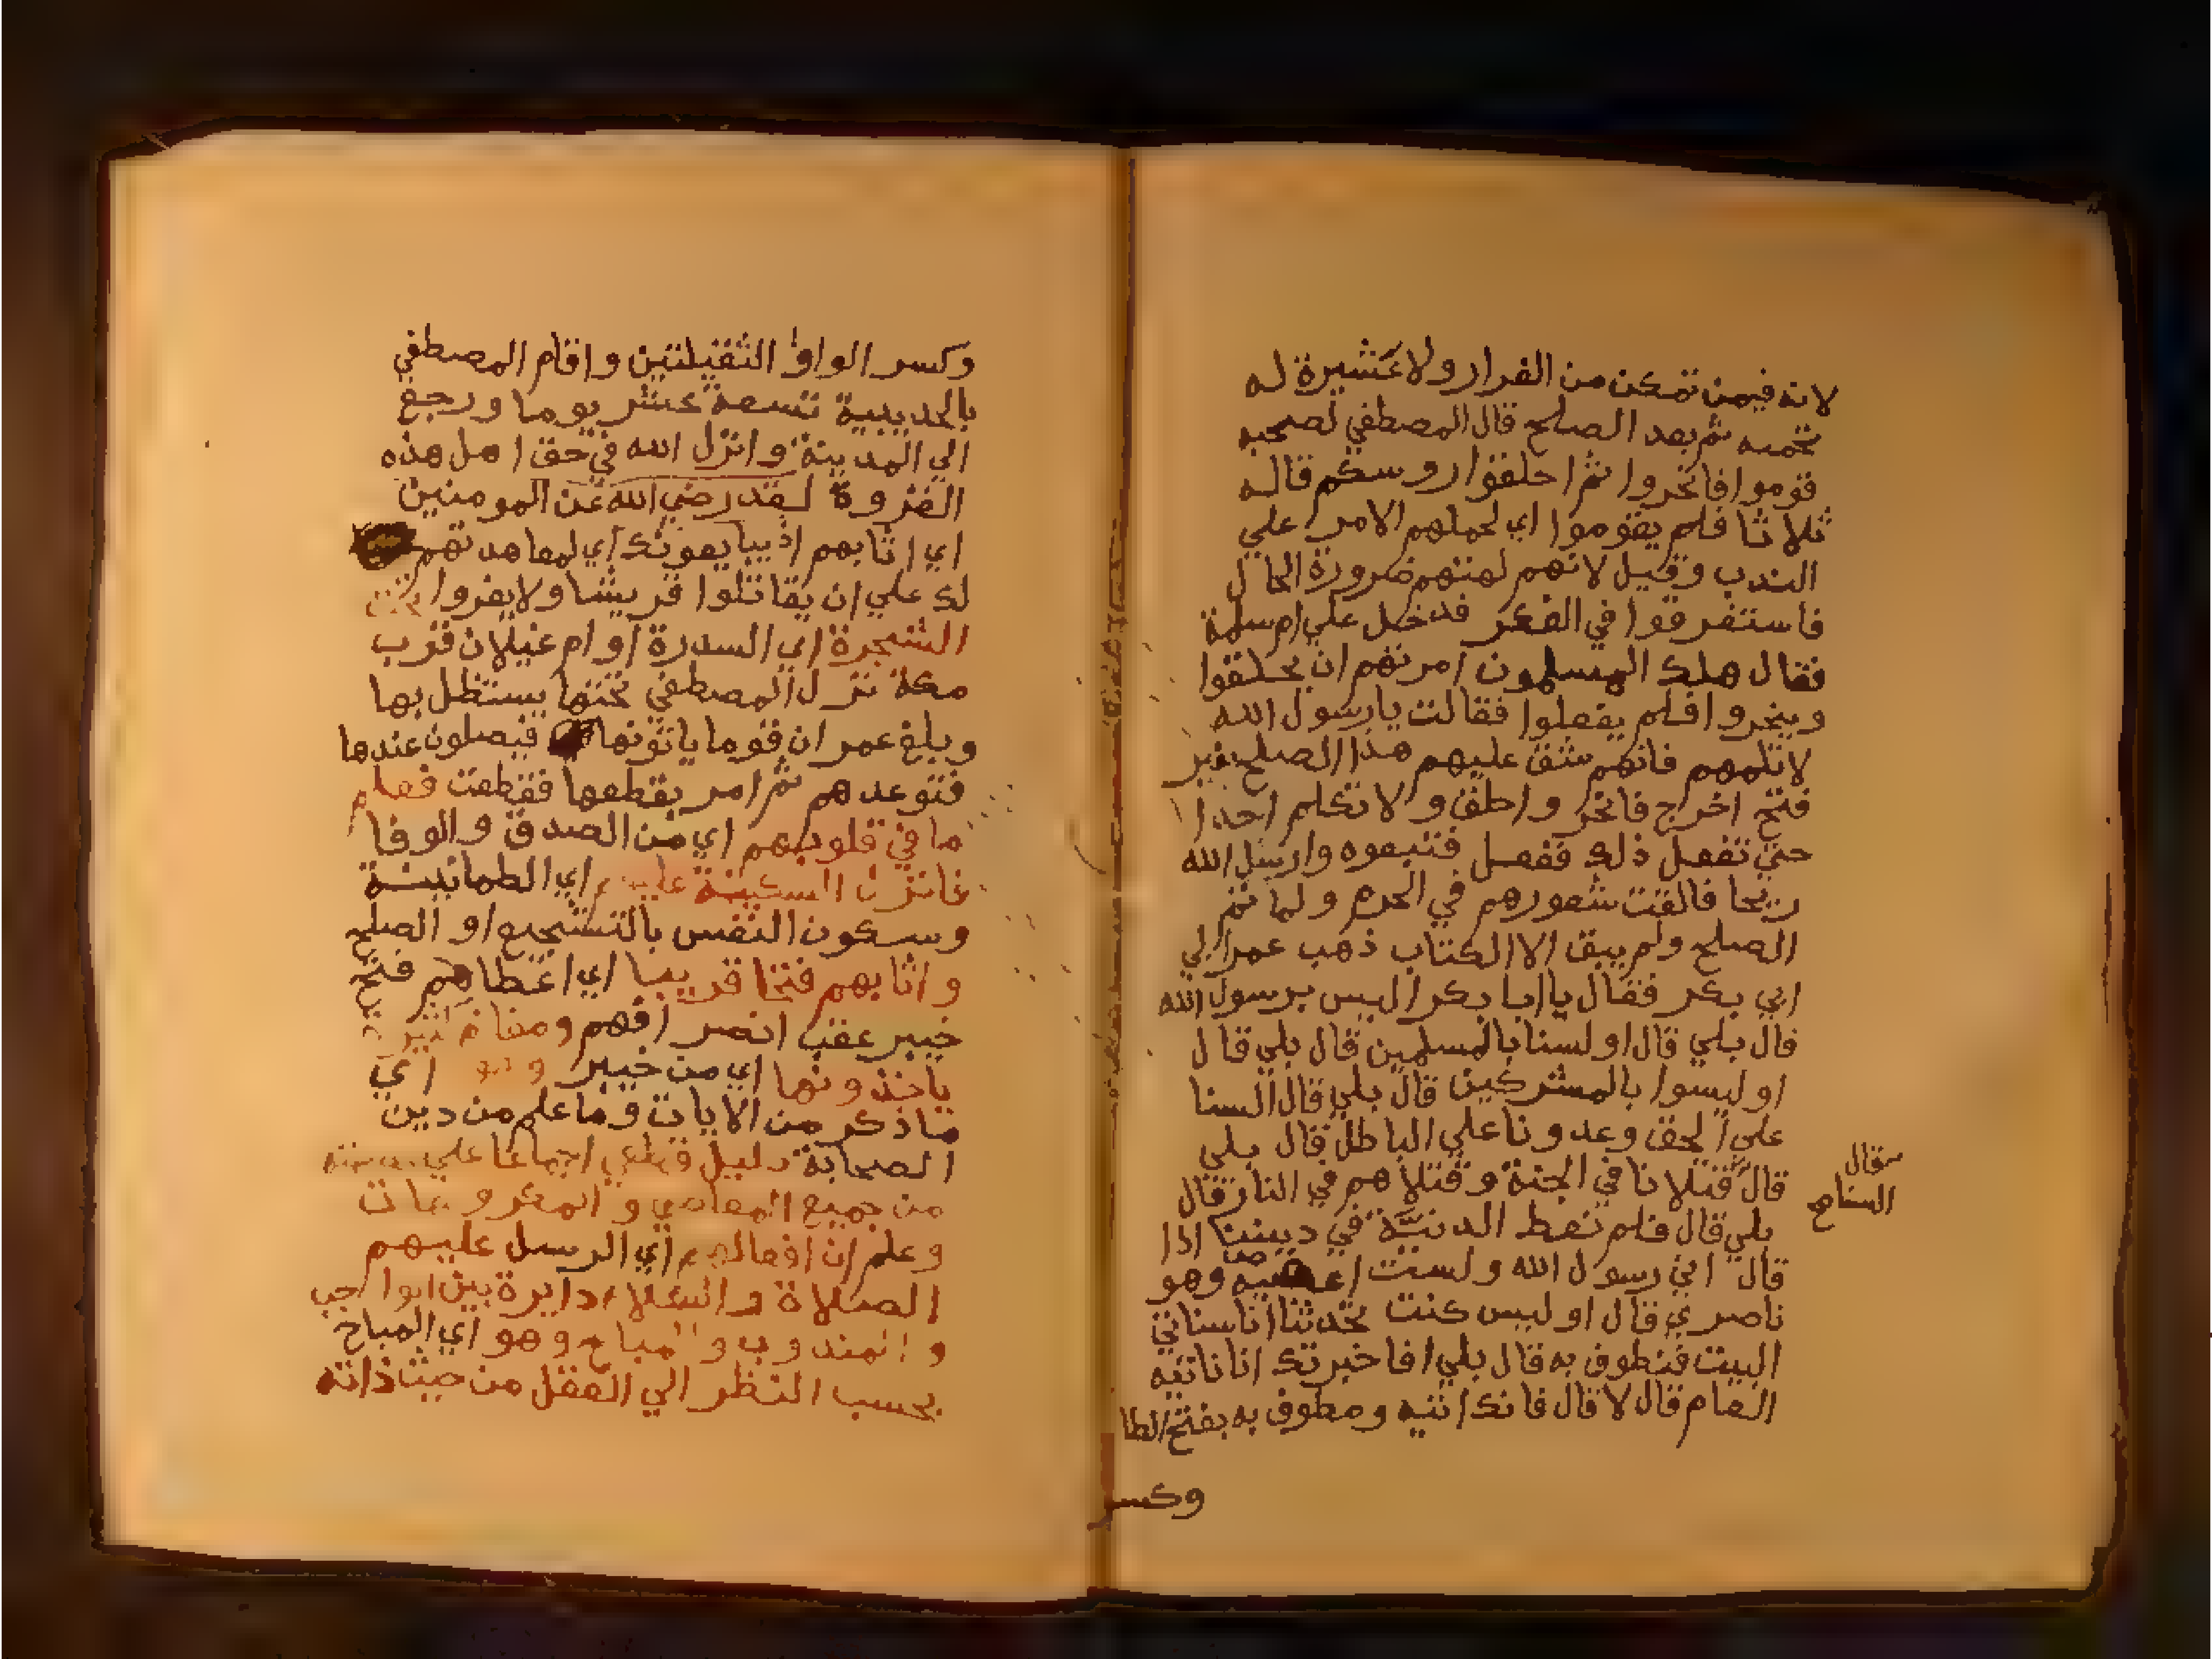 لانه فيمن تمكن من الفرار ولا عشيرة له
تحميه ثم بعد الصلح قال المصطفي لصحبه
قوموا فانحروا ثم احلقوا روسكم قاله
ثلاثا فلم يقوموا اي لحملهم الامر علي
الندب وقيل لانهم لهتهم ضرورة الحال
فاستفرقوا في الفكر فدخل علي ام سلمة
فقال هلك المسلمون امرتهم ان يحلقوا
وينحروا فلم يفعلوا فقالت يارسول الله
لا تلمهم فانهم شق عليهم هذا الصلح بغير
فتح اخرج فانحر واحلق ولا تكلم احدا
حتي تفعل ذلك ففعل فتبعوه وارسل الله
ريحا فالقت شعورهم في الحرم ولما تم
الصلح ولم يبق الا الكتاب ذهب عمر الي
ابي بكر فقال يا ابا بكر اليس برسول الله
قال بلي قال اولسنا بالمسلمين قال بلي قال
اوليسوا بالمشركين قال بلي قال السنا
علي الحق وعدونا علي الباطل قال بلي
قال قتلانا في الجنة وقتلاهم في النار قال
بلي قال فلم نعط الدنية في ديننا اذا
قال اني رسول الله ولست اعصيه وهو
ناصري قال اوليس كنت تحدثنا انا سناتي
البيت فنطوف به قال بلي افاخبرتك انا ناتيه
العام قال لا قال فانك اتيه ومطوف به بفتح الطا
وكسر
وكسر الواو الثقيلتين واقام المصطفي
بالحديبية تسعة عشر يوما ورجع
الي المدينة وانزل الله في حق اهل هذه
الغزوة لقد رضي الله عن المومنين
اي اثابهم اذ يبايعونك اي لمعاهدتهم
لك علي ان يقاتلوا قريشا ولا يفروا تحت
الشجرة اي السدرة او ام غيلان قرب
مكة نزل المصطفي تحتها يستظل بها
وبلغ عمر ان قوما ياتونها فيصلون عندها
فتوعدهم ثم امر بقطعها فقطعت فعلم
ما في قلوبهم اي من الصدق والوفا
فانزل السكينة عليهم اي الطمانينة
وسكون النفس بالتشجيع او الصلح
واثابهم فتحا قريبا اي اعطاهم فتح
خيبر عقب انصرافهم ومغانم كثيرة
ياخذونها اي من خيبر اي
ماذكر من الايات وما علم من دين
الصحابة دليل قطعي اجماعا علي
من جميع المعاصي والمكروهات
وعلم ان افعالهم اي الرسل عليهم
الصلاة والسلام دايرة بين الواجب
والمندوب والمباح وهو اي المباح
بحسب النظر الي الفعل من حيث ذاته